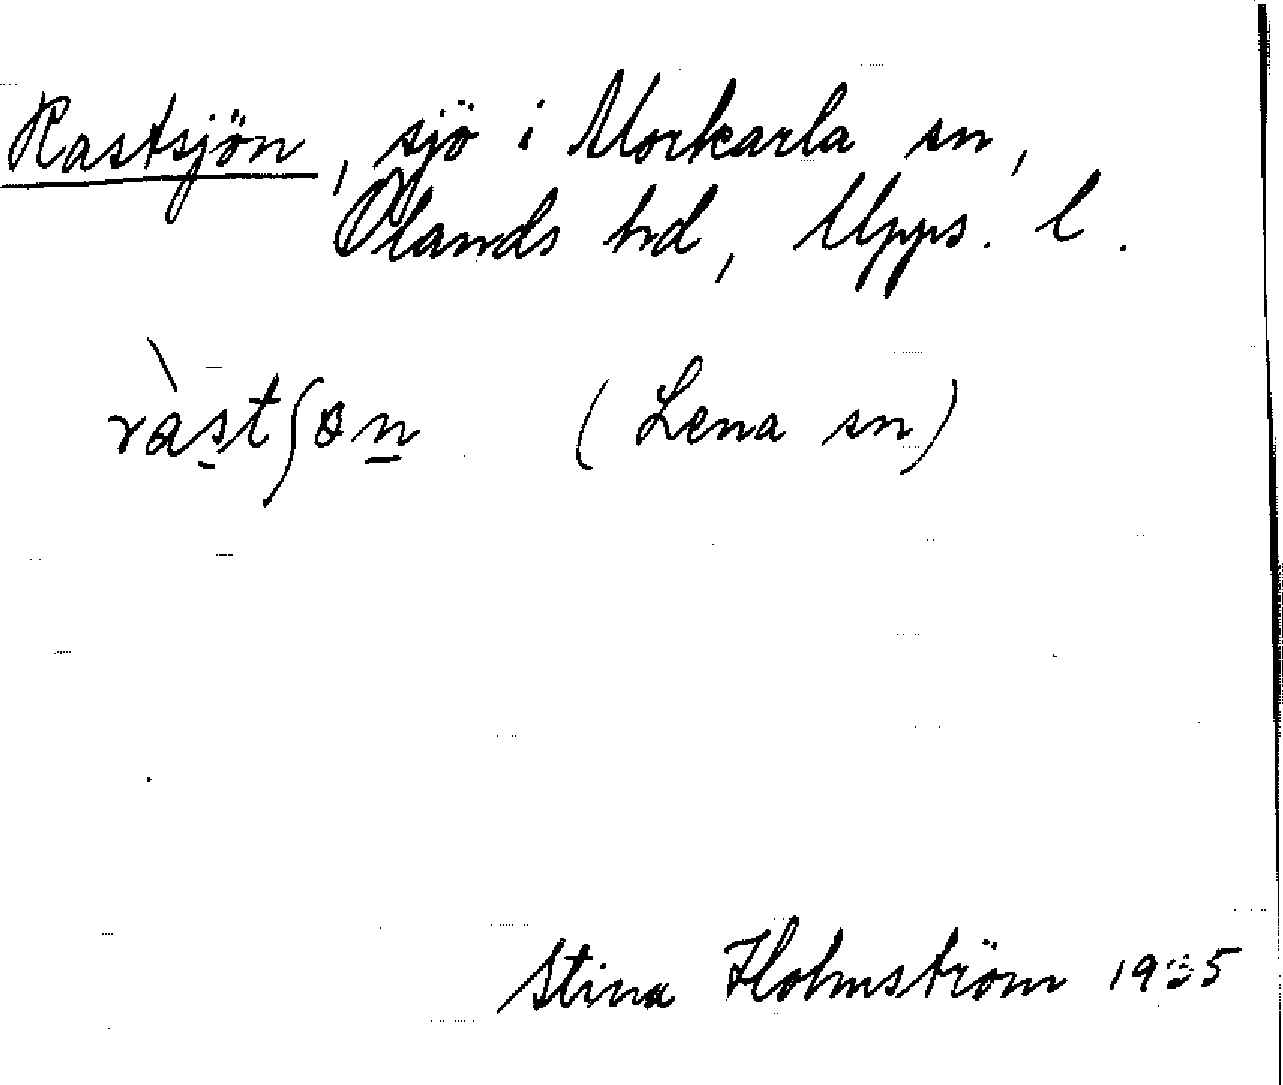 Rastsjön, sjö i Morkarla sn,
Ölands hd, Upps. l.
ràstʃɵn (Lena sn)
Stina Holmström 1935